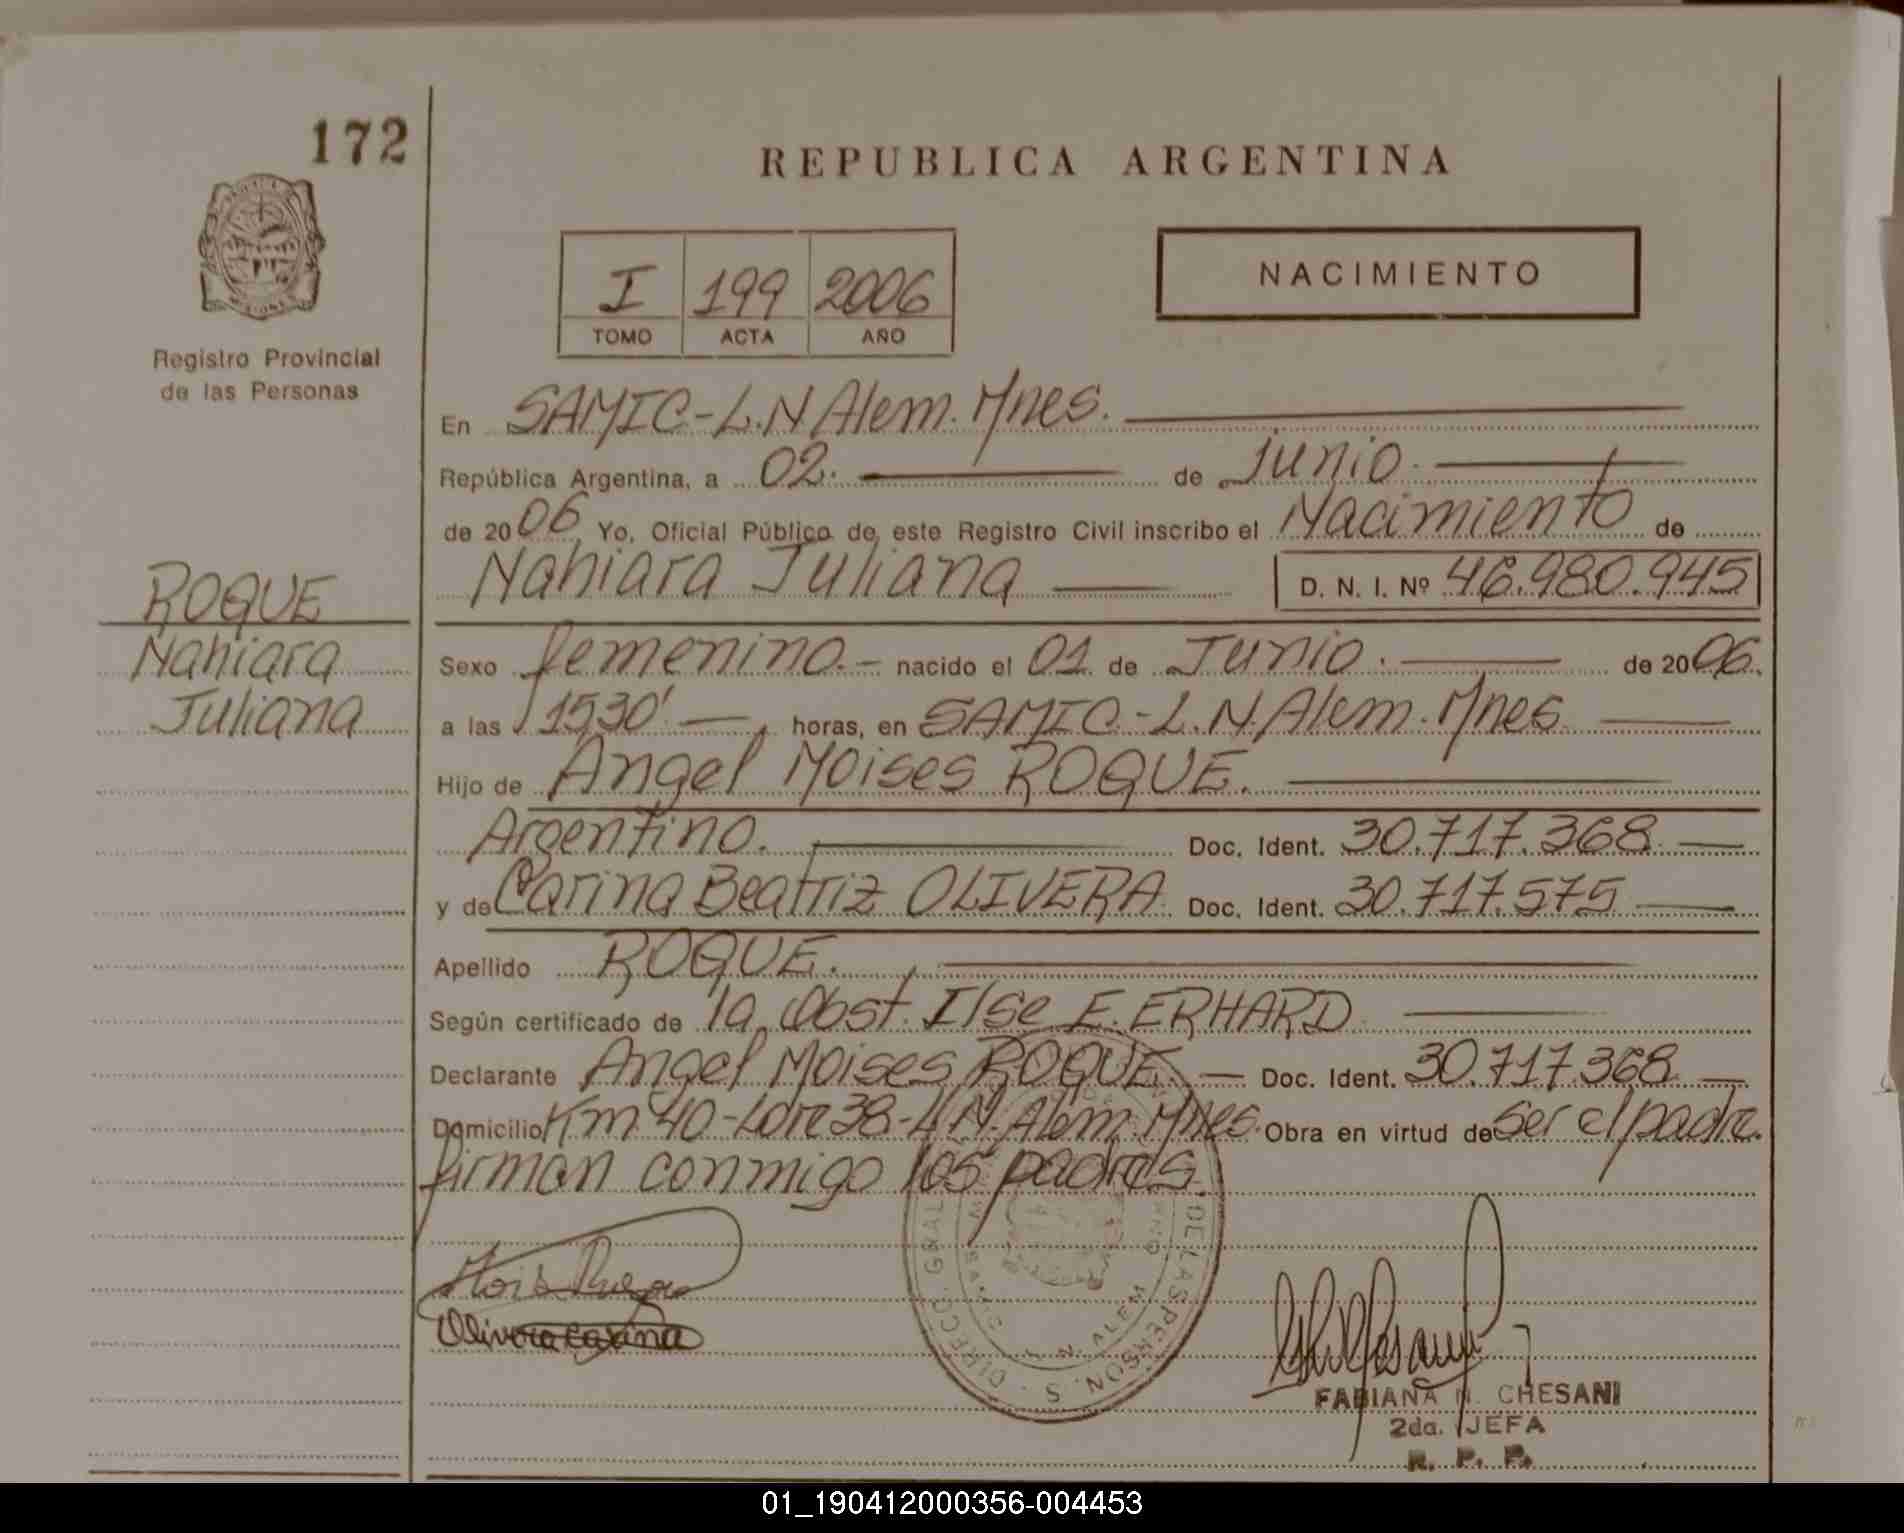 172
REPUBLICA ARGENTINA
I 199 2006
TOMO ACTA AÑO
NACIMIENTO
Registro Provincial
de las Personas
En SAMIC-L.N Alem. Mnes.
República Argentina, a 02. de Junio.
de 2006 Yo, Oficial Público de este Registro Civil inscribo el Nacimiento de
Nahiara Juliana D. N. I. Nº 46.980.945
ROQUE
Nahiara
Juliana
Sexo femenino.- nacido el 01 de Junio. de 2006.
a las 1530' horas, en SAMIC.-L.N.Alem. Mnes
Hijo de Angel Moises ROQUE.
Argentino. Doc. Ident. 30.717.368
y de Carina Beatriz OLIVERA Doc. Ident. 30.717.575
Apellido ROQUE.
Según certificado de la Obst. Ilse E. ERHARD
Declarante Angel Moises ROQUE. Doc. Ident. 30.717.368
Domicilio Km 40-Lote 38-L.N.Alem. Mnes. Obra en virtud de ser el padre.
firman conmigo los padres.
Olivera Carina
DIRECC. GRAL. DE LAS PERSON. S.
L. N. ALEM
FABIANA N. CHESANI
2da. JEFA
R. P. P.
01_190412000356-004453